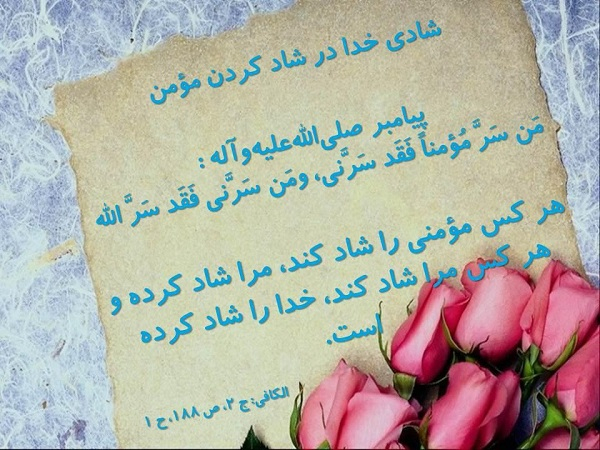 شادی خدا در شاد کردن مؤمن
پیامبر صلی‌الله‌علیه‌وآله :
مَن سَرَّ مُؤمناً فَقَد سَرَّنی، ومَن سَرَّنی فَقَد سَرَّ الله
هر کس مؤمنی را شاد کند، مرا شاد کرده و
هر کس مرا شاد کند، خدا را شاد کرده
است.
الکافی: ج ۲، ص ۱۸۸، ح ۱